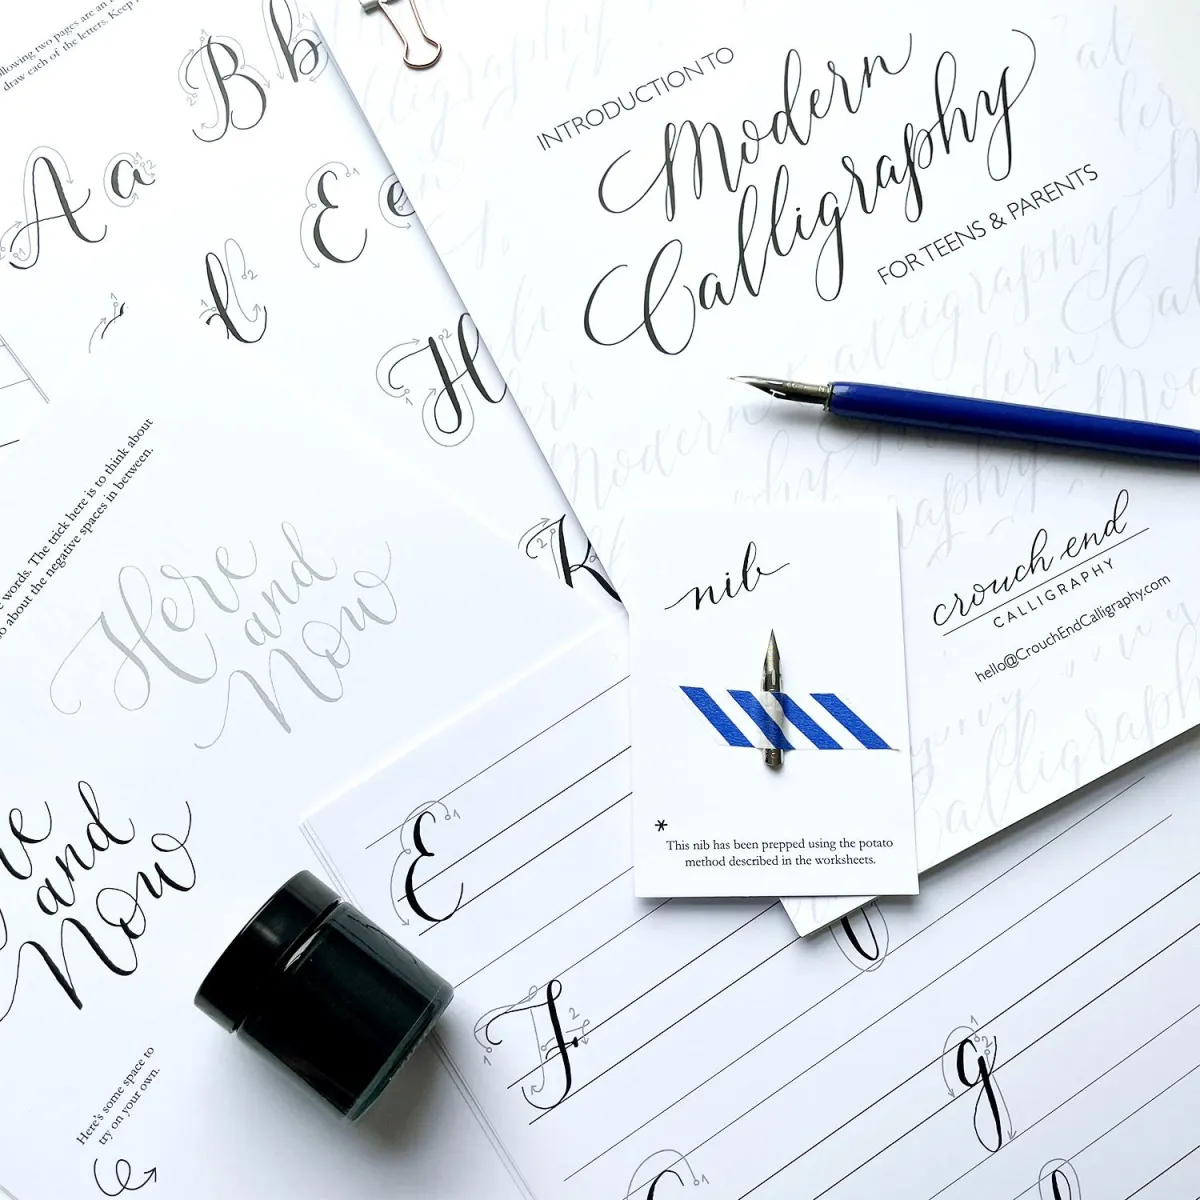 INTRODUCTION TO
Modern
Calligraphy
FOR TEENS & PARENTS
crouch end
CALLIGRAPHY
hello@CrouchEndCalligraphy.com
nib
*
This nib has been prepped using the potato
method described in the worksheets.
following two pages are an
draw each of the letters. Keep
B b
A a
E e
t
H
K
words. The trick here is to think about
so about the negative spaces in between.
Here
and
Now
and
Now
Here's some space to
try on your own.
E
F
g